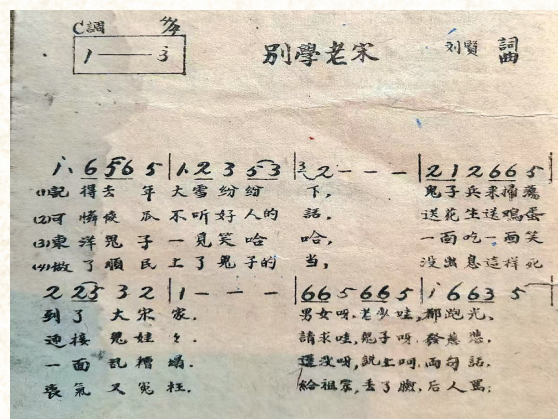 C調 4/4
1——3̇
別學老宋
刘賢 詞曲
1̇. 6 5 6 5 | 1. 2 3 5 3 | 3 2 - - - | 2 1 2 6 6 5 |
(1)記得去年大雪纷纷下, 鬼子兵来掃蕩
(2)可憐傻瓜不听好人的話. 送花生送鸡蛋
(3)東洋鬼子一見笑哈哈, 一面吃一面笑
(4)做了順民上了鬼子的当, 没出息這样死
2 2 5 3 2 | 1 - - - | 6 6 5 6 6 5 | 1̇ 6 6 3 5 - |
到了大宋家. 男女呀,老少哇,都跑光、
迎接鬼娃々. 請求哇,鬼子呀,發慈悲.
一面乱糟塌. 還没呀,説上呵,両句話.
喪氣又冤枉. 給祖宗,丢了臉,后人罵;